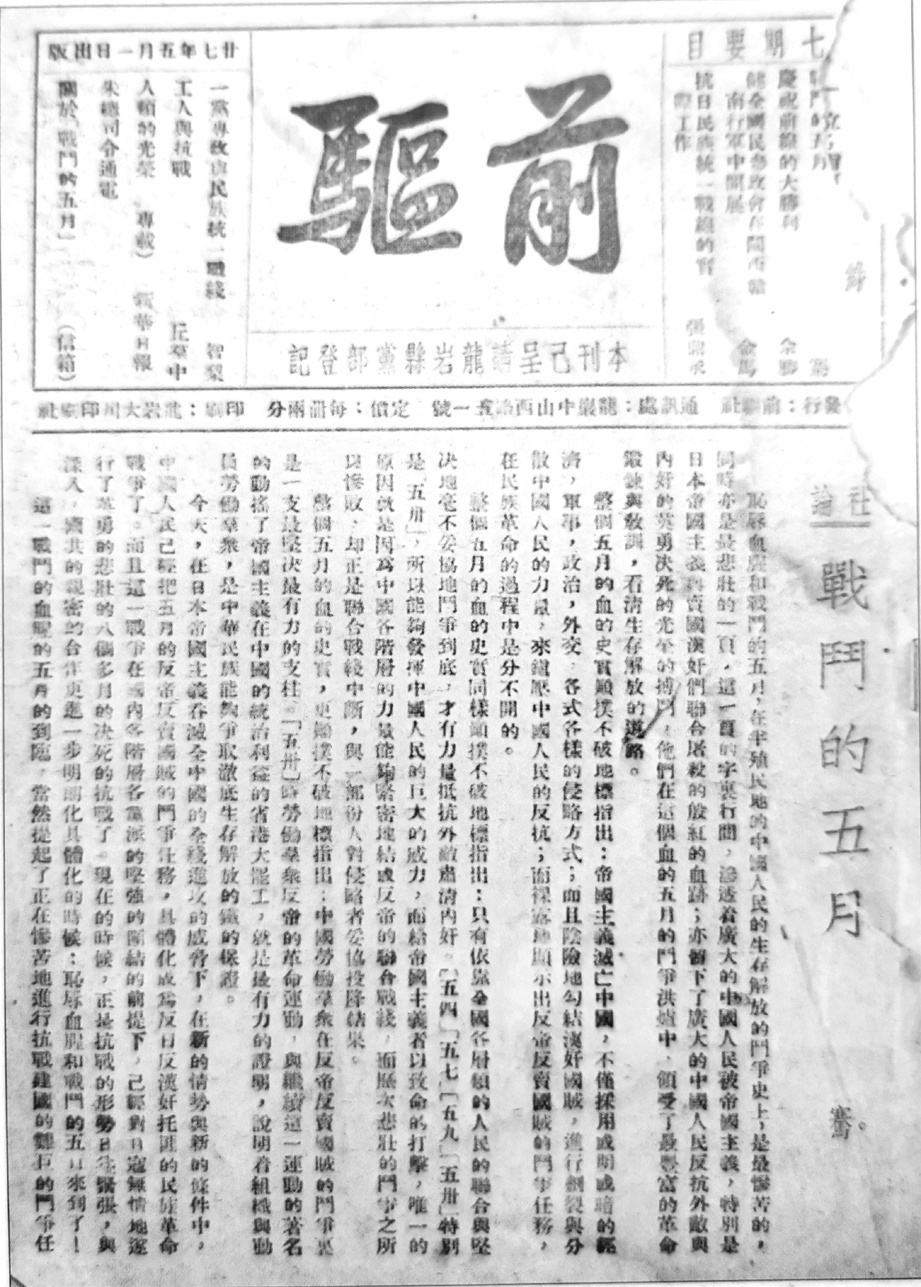 七期要目
戰鬥的五月
慶祝前線的大勝利 余勝
健全國民參政會在閩西贛
南行軍中開展 金馬
抗日民族統一戰線的實
際工作 張鼎丞
前驅
本刊已呈請龍岩縣黨部登記
廿七年五月一日出版
一黨專政與民族統一戰綫 智梨
工人與抗戰 丘羣中
人類的光榮（專載） 新華日報
朱總司令通電
關於「戰鬥的五月」（信箱）
發行：前驅社 通訊處：龍巖中山西路壹一號 定價：每册兩分 印刷：龍岩大川印刷社
社論
戰鬥的五月
恥辱血腥和戰鬥的五月，在半殖民地的中國人民的生存解放的鬥爭史上，是最慘苦的，
同時亦是最悲壯的一頁，這一頁的字裏行間，滲透着廣大的中國人民被帝國主義，特別是
日本帝國主義和賣國漢奸們聯合堵殺的殷紅的血跡；亦留下了廣大的中國人民反抗外敵與
內奸的英勇決死的光榮的搏鬥，他們在這個血的五月的鬥爭洪爐中，領受了最豐富的革命
鍛鍊與教訓，看清生存解放的道路。
整個五月的血的史實顛撲不破地標指出：帝國主義滅亡中國，不僅採用或明或暗的經
濟，軍事，政治，外交，各式各樣的侵略方式；而且陰險地勾結漢奸國賊，進行割裂與分
散中國人民的力量，來鎮壓中國人民的反抗；而裸露地顯示出反帝反賣國賊的鬥爭任務，
在民族革命的過程中是分不開的。
整個五月的血的史實同樣顛撲不破地標指出：只有依靠全國各層類的人民的聯合與堅
决地毫不妥協地鬥爭到底，才有力量抵抗外敵肅清內奸。「五四」「五七」「五九」「五卅」特別
是「五卅」，所以能夠發揮中國人民的巨大的威力，而給帝國主義者以致命的打擊，唯一的
原因就是因爲中國各階層的力量能夠緊密地結成反帝的聯合戰綫，而歷次悲壯的鬥爭之所
以慘敗，却正是聯合戰綫中斷，與一部份人對侵略者妥協投降結果。
整個五月的血的史實，更顛撲不破地標指出：中國勞働羣衆在反帝反賣國賊的鬥爭裏
是一支最堅決最有力的支柱。「五卅」時勞働羣衆反帝的革命運動，與繼續這一運動的著名
的動搖了帝國主義在中國的統治利益的省港大罷工，就是最有力的證明，說明着組織與動
員勞働羣衆，是中華民族能夠爭取澈底生存解放的鐵的保證。
今天，在日本帝國主義吞滅全中國的全綫進攻的威脅下，在新的情勢與新的條件中，
中國人民已經把五月的反帝反賣國賊的鬥爭任務，具體化成爲反日反漢奸托匪的民族革命
戰爭了。而且這一戰爭在國內各階層各黨派的堅強的團結的前提下，已經對日寇無情地進
行了英勇的悲壯的八個多月的決死的抗戰了。現在的時候，正是抗戰的形勢日益緊張，與
深入，國共的親密的合作更進一步明朗化具體化的時候；恥辱血腥和戰鬥的五月來到了！
這一戰鬥的血腥的五月的到臨，當然提起了正在慘苦地進行抗戰建國的艱巨的鬥爭任